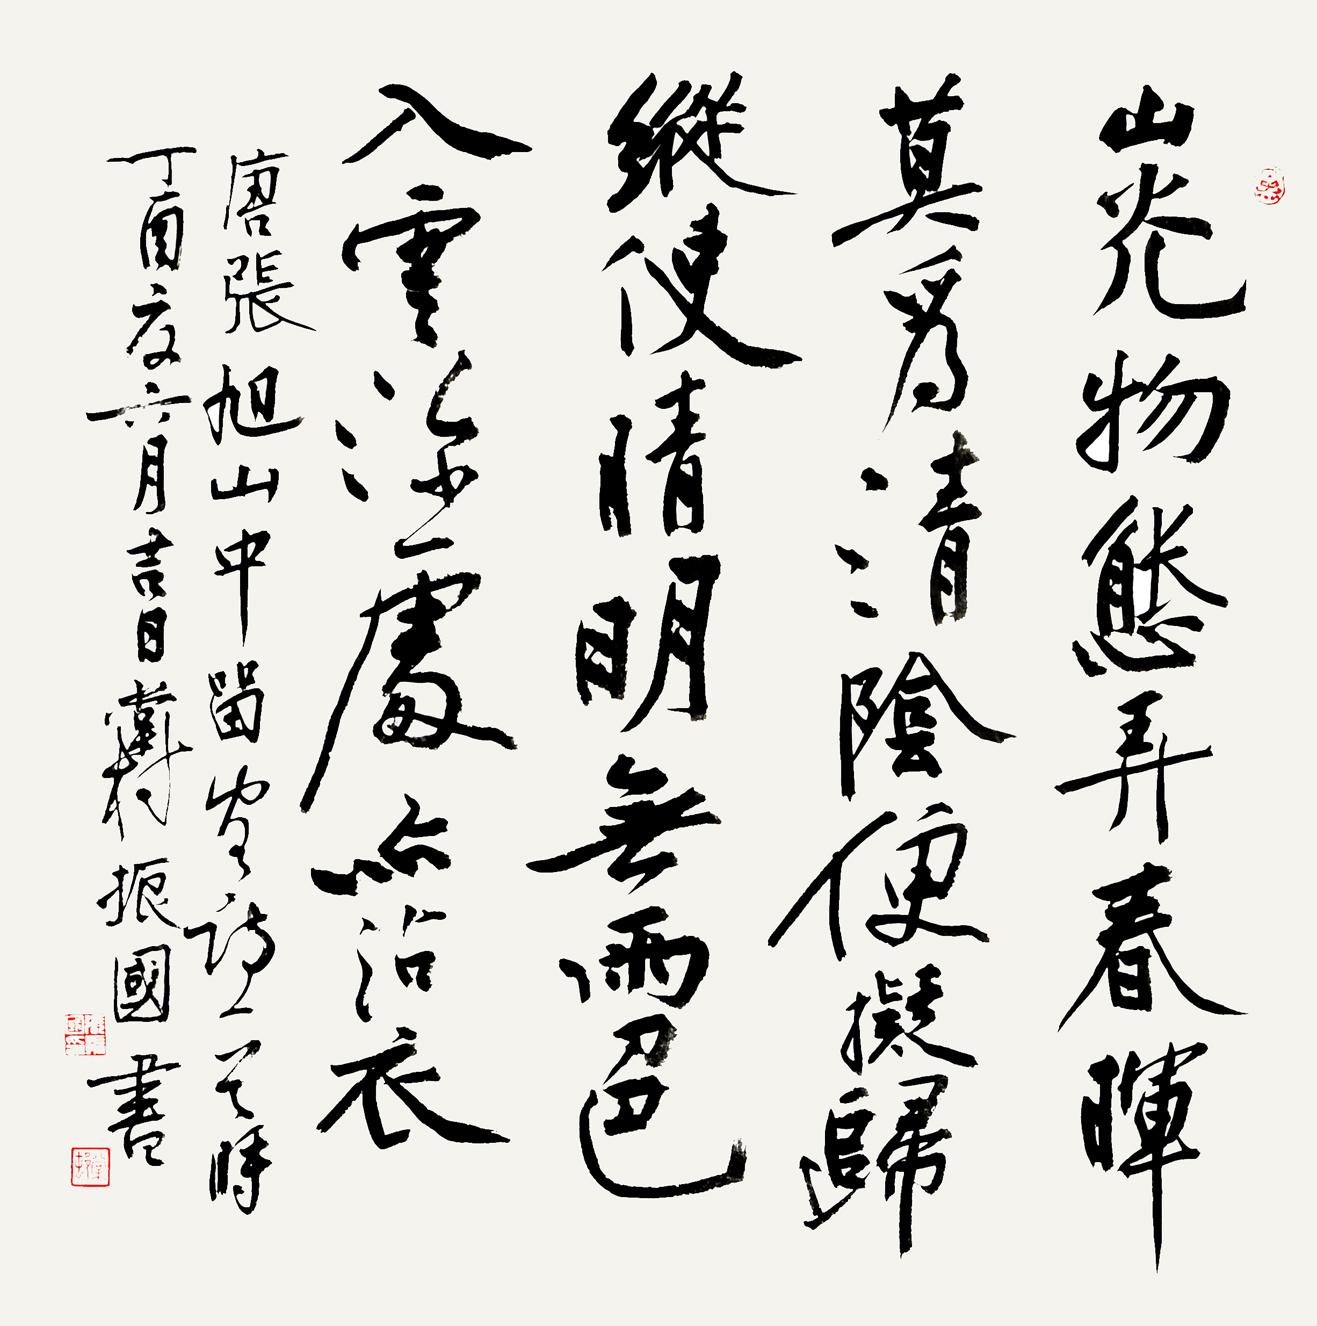 山光物態弄春暉
莫為清陰便擬歸
縱使晴明無雨色
入雲深處亦沾衣
唐張旭山中留客詩一首時
丁酉夏六月吉日村振國書